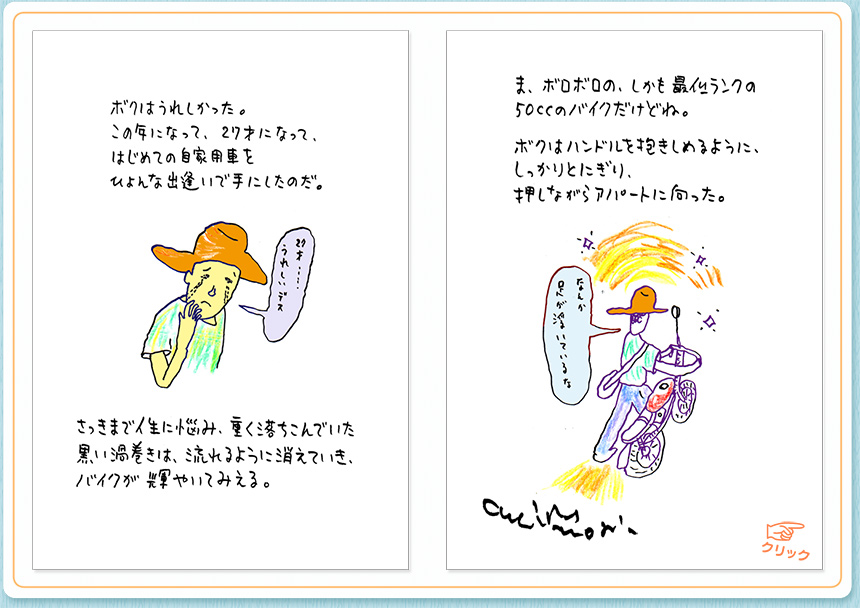 ボクはうれしかった。
この年になって、27才になって、
はじめての自家用車を
ひょんな出逢いで手にしたのだ。
27才……
うれしいデス
さっきまで人生に悩み、重く落ちこんでいた
黒い渦巻きは、流れるように消えていき、
バイクが輝やいてみえる。
ま、ボロボロの、しかも最低ランクの
50ccのバイクだけどね。
ボクはハンドルを抱きしめるように、
しっかりとにぎり、
押しながらアパートに向った。
なんか
足が浮いているな
クリック